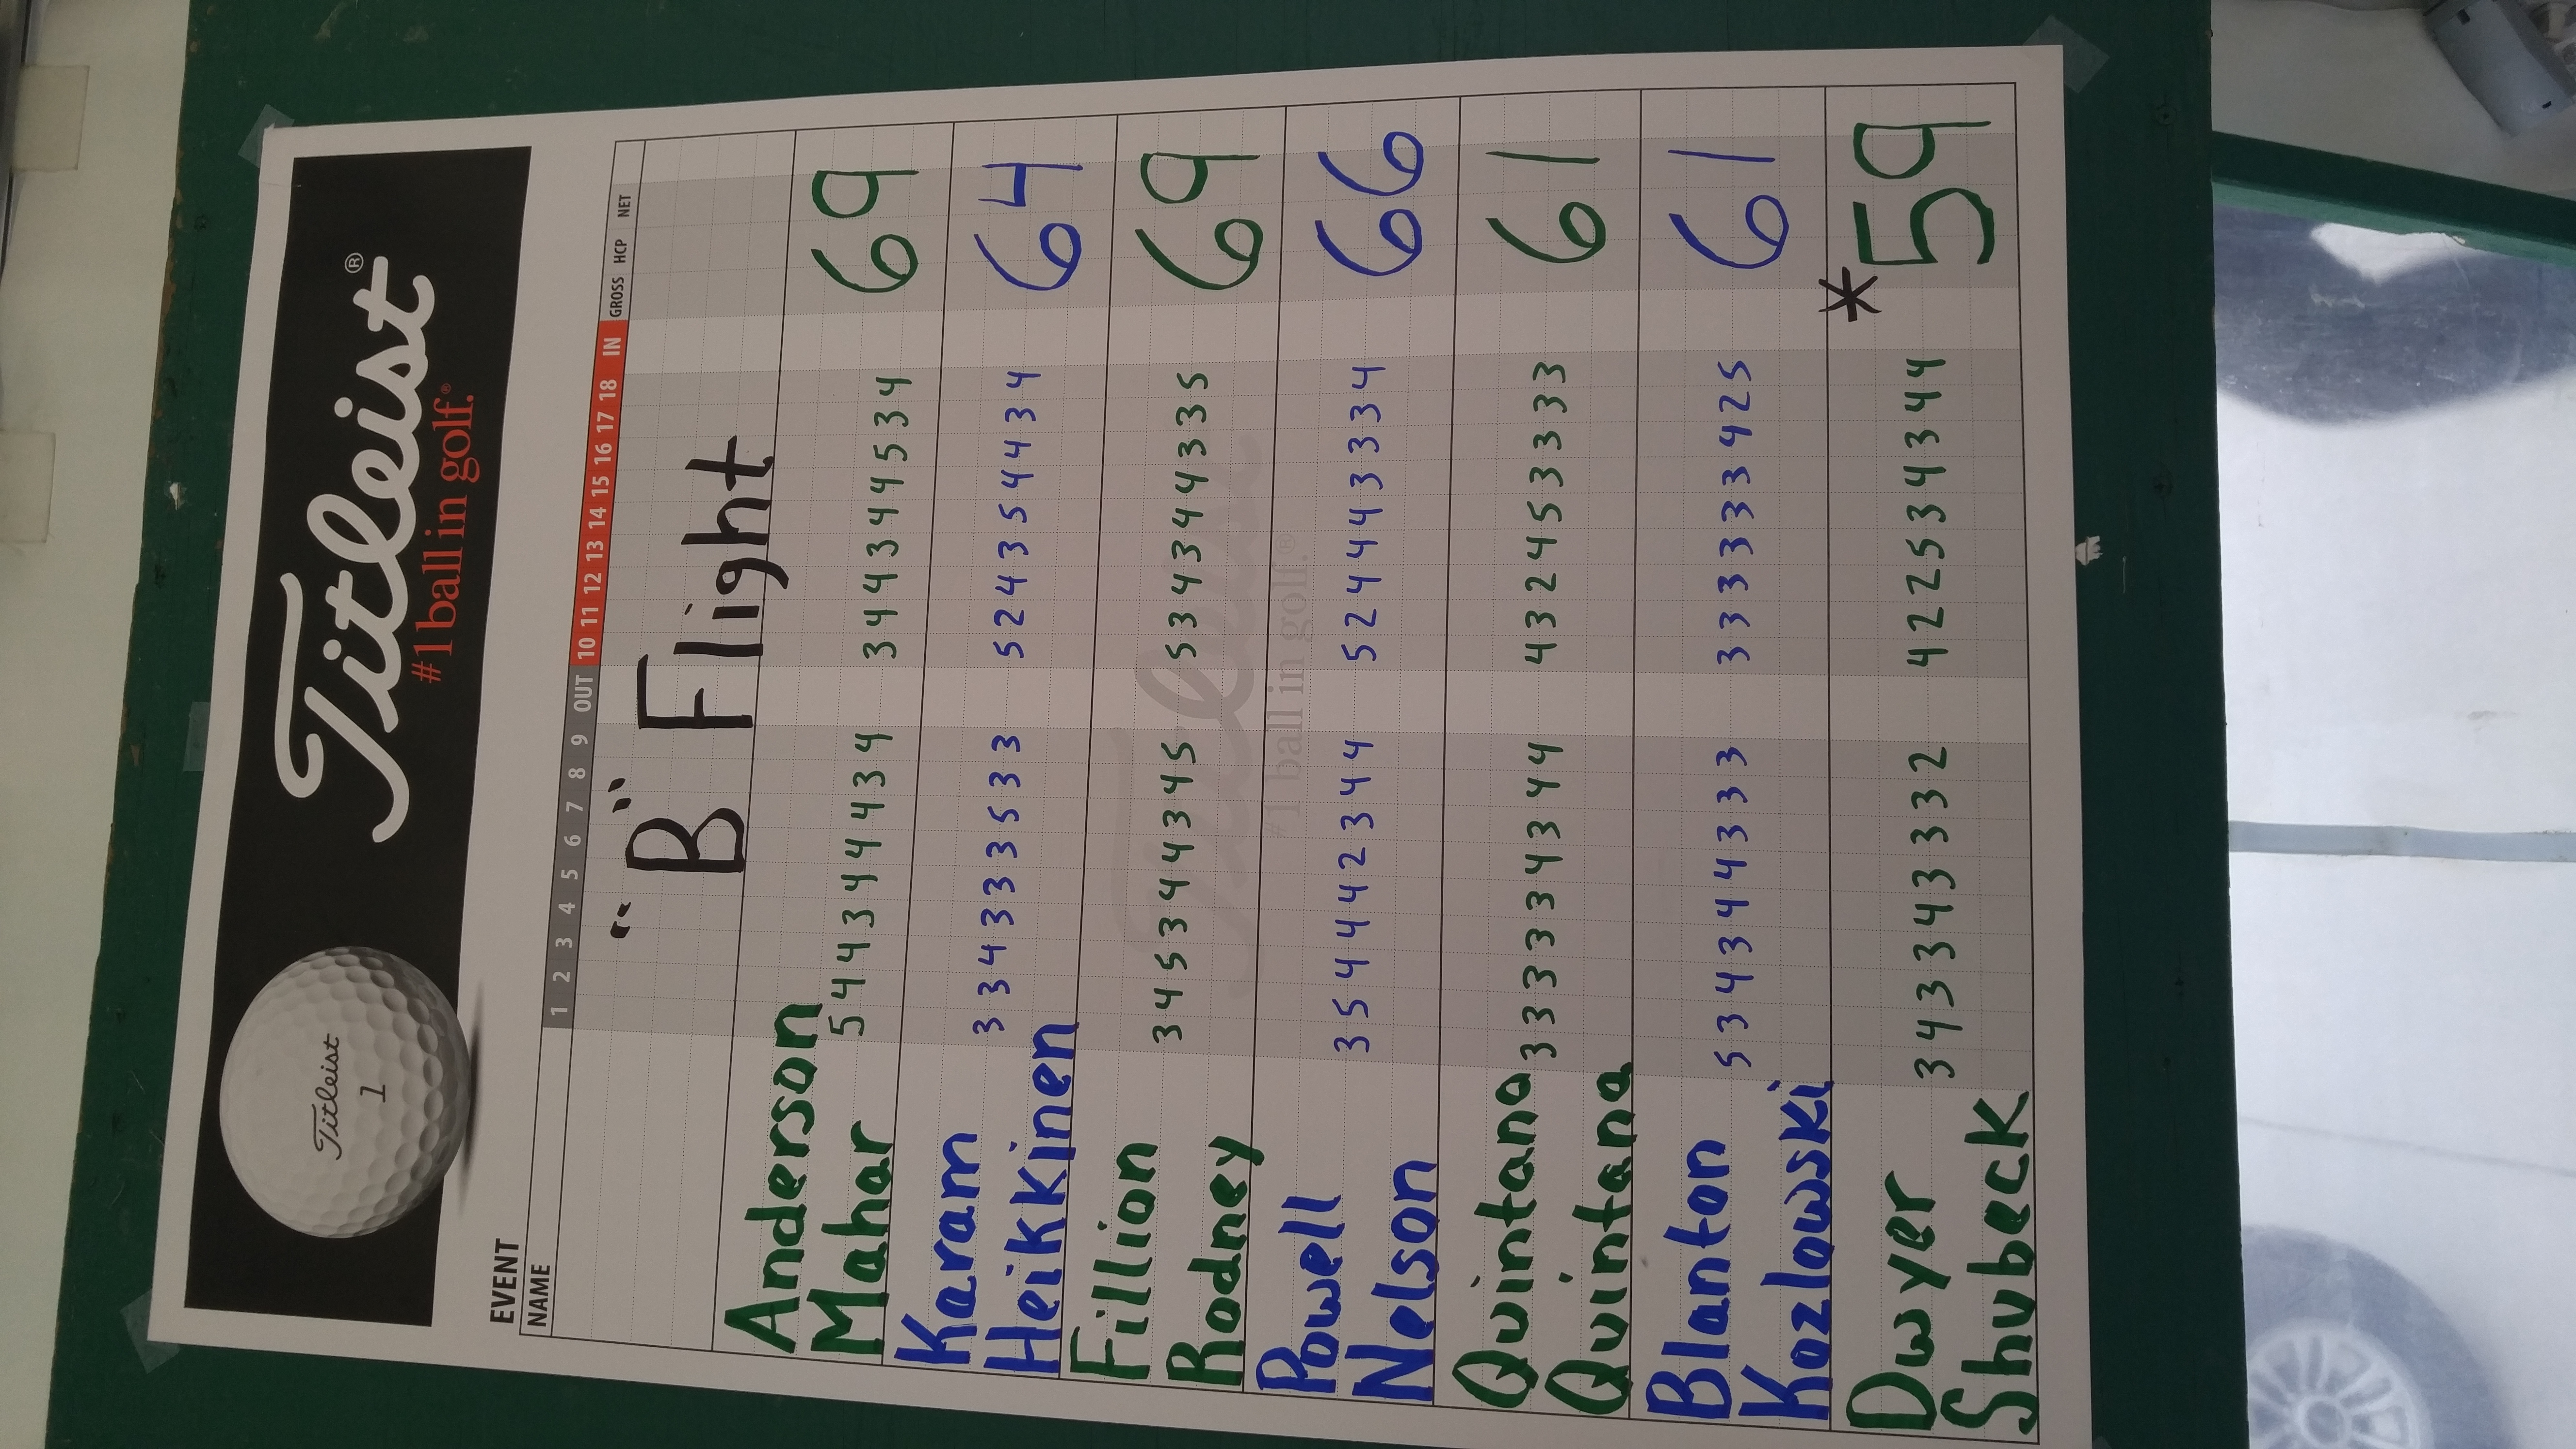 Titleist
1
Titleist®
#1 ball in golf.®
EVENT
NAME 1 2 3 4 5 6 7 8 9 OUT 10 11 12 13 14 15 16 17 18 IN GROSS HCP NET
"B" Flight
Anderson
Mahar 5 4 4 3 4 4 4 3 4 3 4 4 3 4 4 5 3 4 69
Karam
Heikkinen 3 3 4 3 3 3 5 3 3 5 2 4 3 5 4 4 3 4 64
Fillion
Rodney 3 4 5 3 4 4 3 4 5 5 3 4 3 4 4 3 3 5 69
Titleist
#1 ball in golf.®
Powell
Nelson 3 5 4 4 4 2 3 4 4 5 2 4 4 4 3 3 3 4 66
Quintana
Quintana 3 3 3 3 3 4 3 4 4 4 3 2 4 5 3 3 3 3 61
Blanton
Kozlowski 5 3 4 3 4 4 3 3 3 3 3 3 3 3 3 4 2 5 61
Dwyer
Shubeck 3 4 3 3 4 3 3 3 2 4 2 2 5 3 4 3 4 4 *59